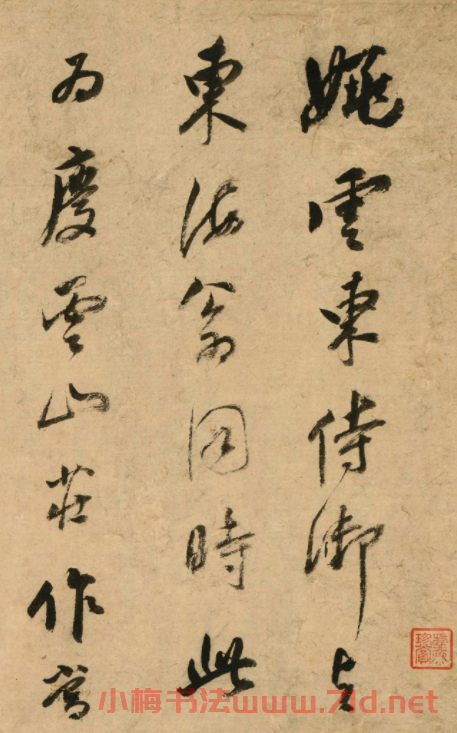 姚雲東侍御與
東海翁同時此
為慶雲山莊作嘗
小梅书法www.71d.net